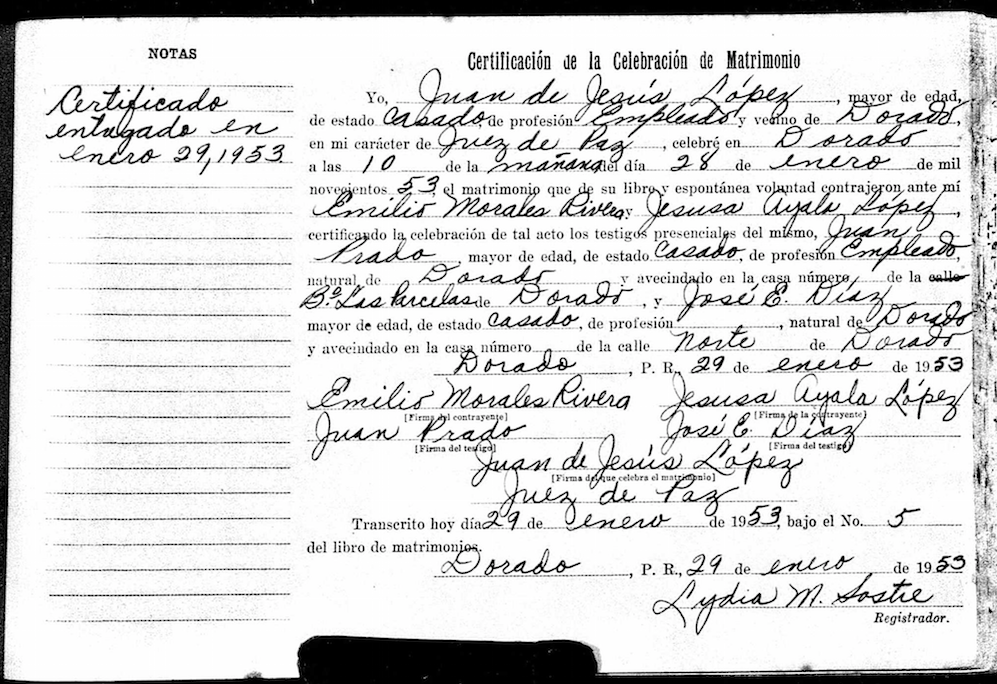 NOTAS
Certificado
entregado en
enero 29, 1953
Certificación de la Celebración de Matrimonio
Yo, Juan de Jesús López, mayor de edad,
de estado casado, de profesión Empleado y vecino de Dorado,
en mi carácter de Juez de Paz, celebré en Dorado
a las 10 de la mañana del día 28 de enero de mil
novecientos 53 el matrimonio que de su libre y espontánea voluntad contrajeron ante mí
Emilio Morales Rivera y Jesusa Ayala López,
certificando la celebración de tal acto los testigos presenciales del mismo, Juan
Prado, mayor de edad, de estado casado, de profesión Empleado,
natural de Dorado y avecindado en la casa número de la calle
Bo. Las Parcelas de Dorado, y José E. Díaz
mayor de edad, de estado casado, de profesión , natural de Dorado
y avecindado en la casa número de la calle Norte de Dorado
Dorado, P. R., 29 de enero de 1953
Emilio Morales Rivera Jesusa Ayala López
[Firma del contrayente] [Firma de la contrayente]
Juan Prado José E. Díaz
[Firma del testigo] [Firma del testigo]
Juan de Jesús López
[Firma del que celebra el matrimonio]
Juez de Paz
Transcrito hoy día 29 de enero de 1953, bajo el No. 5
del libro de matrimonios.
Dorado, P. R., 29 de enero de 1953
Lydia M. Sostre
Registrador.